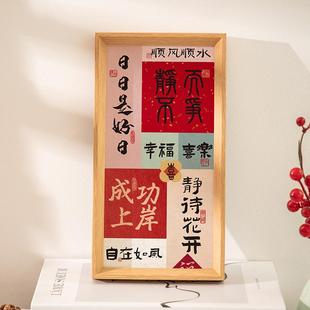 顺风顺水
日日是好日
不爭
靜不
幸福
喜樂
喜
成功
上岸
静待花开
自在如风